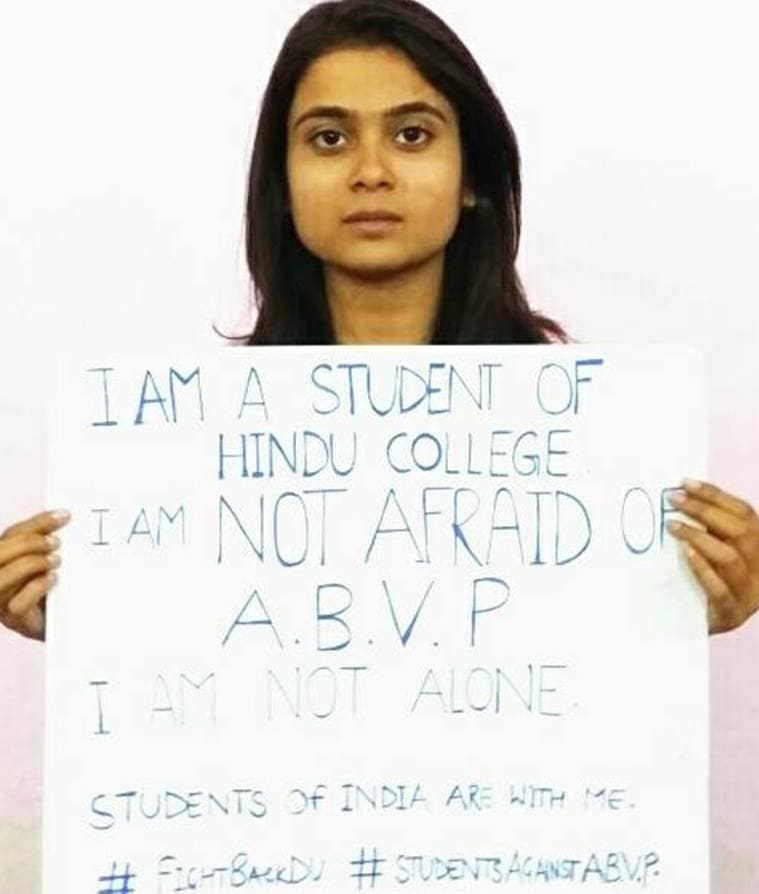 I AM A STUDENT OF
HINDU COLLEGE.
I AM NOT AFRAID OF
A.B.V.P
I AM NOT ALONE.
STUDENTS OF INDIA ARE WITH ME.
# FIGHTBACKDU # STUDENTSAGAINSTABV.P.